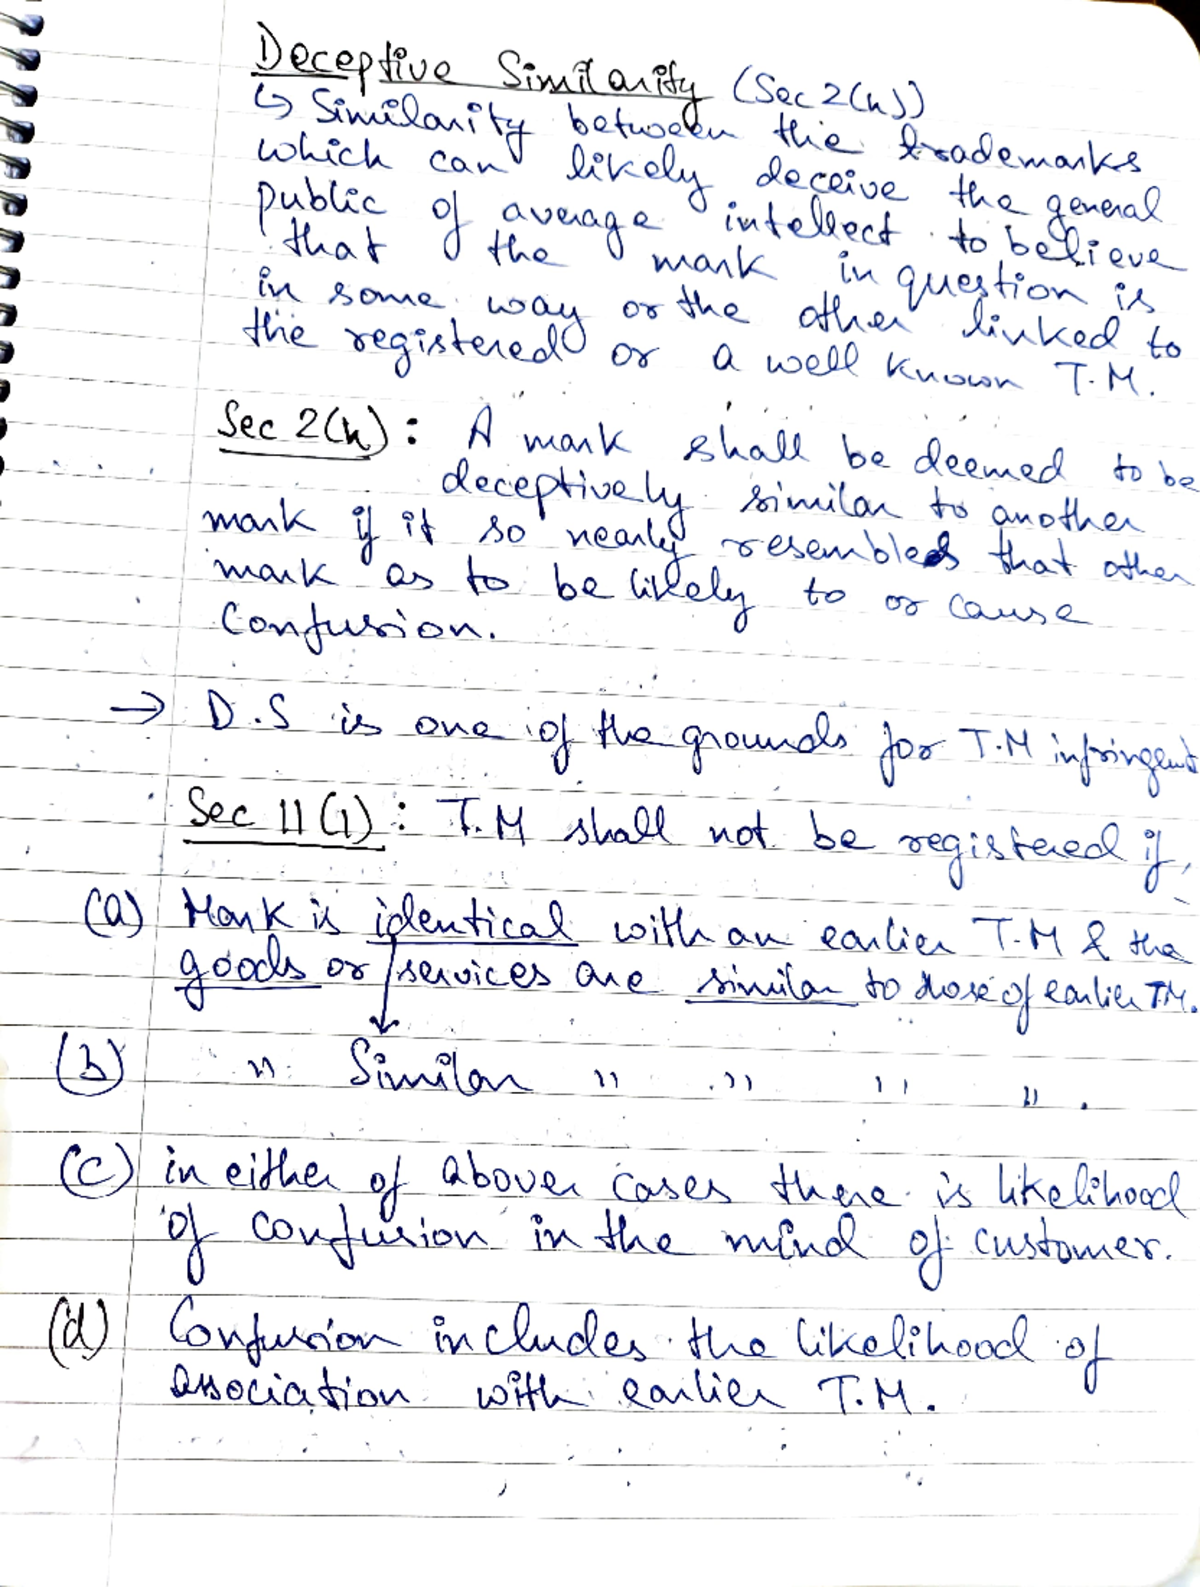 Deceptive Similarity (Sec 2(h))
↳ Similarity between the trademarks
which can likely deceive the general
public of average intellect to believe
that the mark in question is
in some way or the other linked to
the registered or a well known T.M.
Sec 2(h): A mark shall be deemed to be
deceptively similar to another
mark if it so nearly resembles that other
mark as to be likely to or cause
Confusion.
→ D.S is one of the grounds for T.M infringent
Sec 11(1): T.M shall not be registered if,
(a) Mark is identical with an earlier T.M & the
goods or services are similar to those of earlier T.M.
(b) " Similar " " " ".
(c) in either of above cases there is likelihood
of confusion in the mind of customer.
(d) Confusion includes the likelihood of
association with earlier T.M.